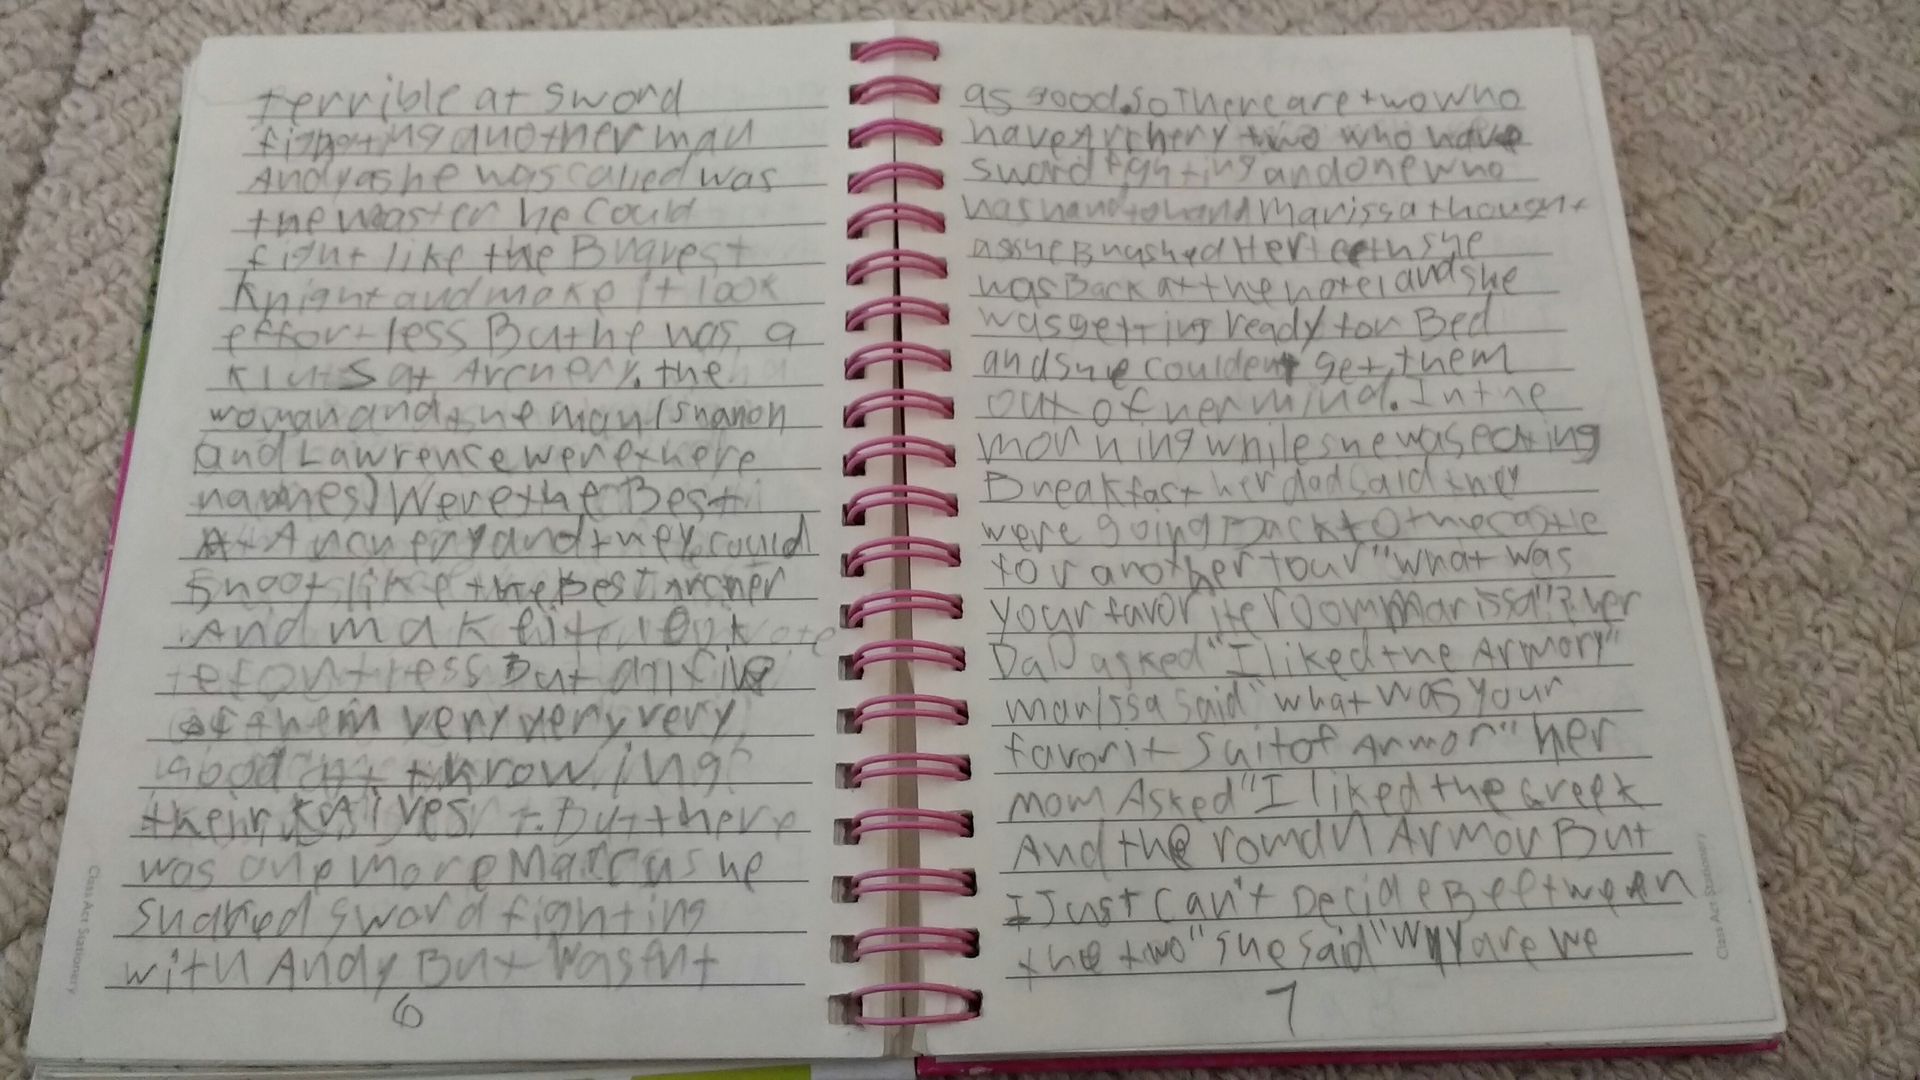 terrible at sword
fighting another man
Andy as he was called was
the master he could
fight like the Bravest
Knight and make it look
effortless But he was a
Kluts at Archery. the
woman and the man (Shanon
and Lawrence were there
names) Were the Best
At Archery and they could
Shoot like the Best Archer
And make it look
effortless But all five
of them very very very
good at throwing
their knives. But there
was one more Marcus he
shared sword fighting
with Andy But wasent
6
Class Act Stationery
as good. So There are two who
have Archery two who have
sword fighting and one who
has hand to hand Marissa thought
as she Brushed Her teeth she
was Back at the hotel and she
was getting ready for Bed
and she coulden't get them
out of her mind. In the
morning while she was eating
Breakfast her dad said they
were going Back to the castle
for another tour "what was
your favorite room Marissa"? her
Dad asked "I liked the Armory"
marissa said "what was your
favorit Suit of Armor" her
mom Asked "I liked the Greek
And the roman Armor But
I Just Can't Decide Beetween
the two" she said "Why are we
7
Class Act Stationery